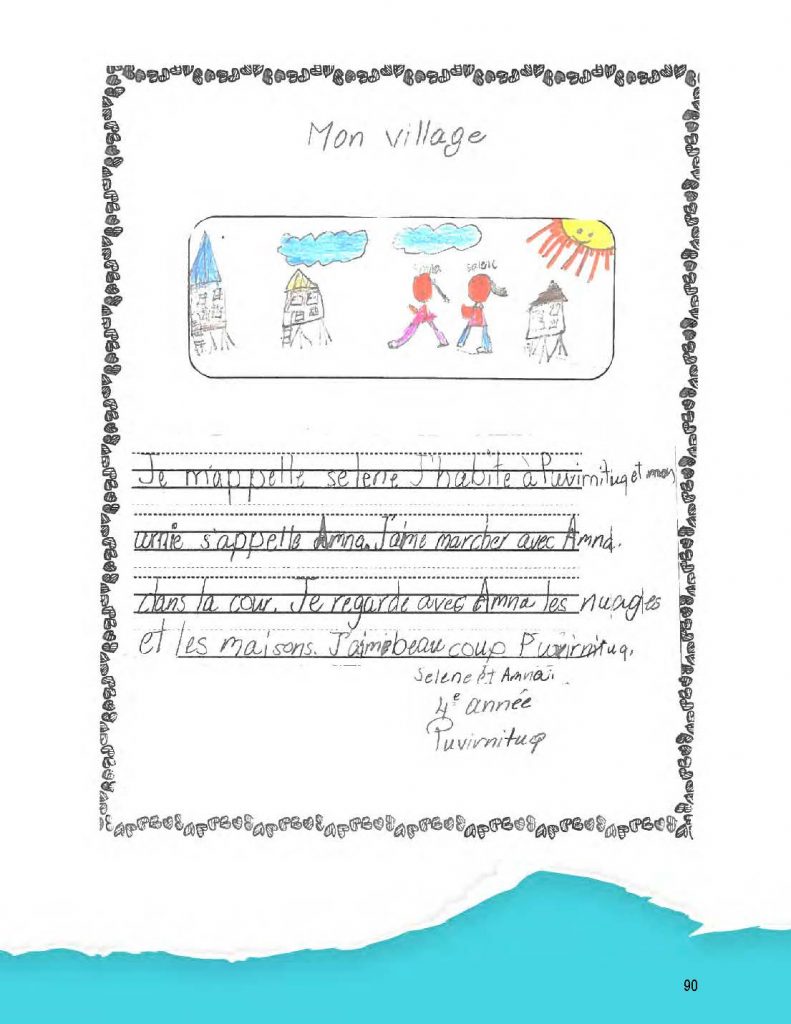 Mon village
selene
Je m'appelle selene J'habite à Puvirnituq et mon
amie s'appelle Amna. J'aime marcher avec Amna.
dans la cour. Je regarde avec Amna les nuages
et les maisons. J'aime beau coup Puvirnituq.
Selene et Amna.
4e année
Puvirnituq
90